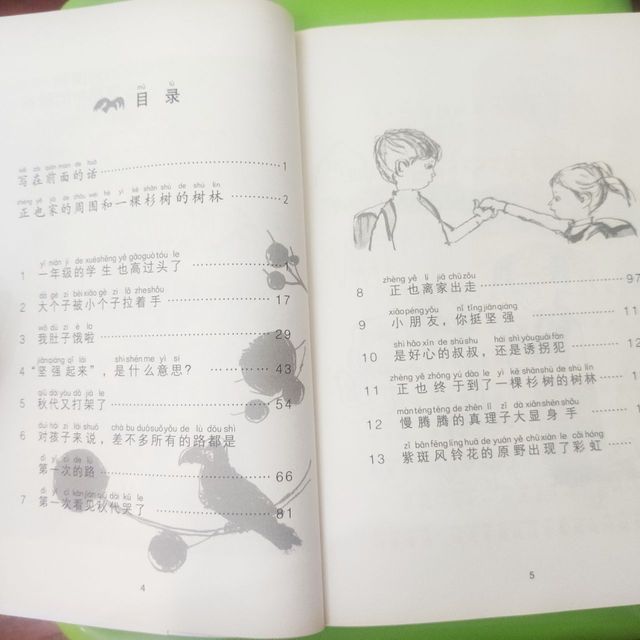 mù lù
目 录
xiě zài qián miàn de huà
写在前面的话 1
zhèng yě jiā de zhōu wéi hé yì kē shān shù de shù lín
正也家的周围和一棵杉树的树林 2
yì nián jí de xuéshēng yě gāoguò tóu le
1 一年级的学生也高过头了
dà gè zi bèi xiǎo gè zi lā zhe shǒu
2 大个子被小个子拉着手 17
wǒ dù zi è la
3 我肚子饿啦 29
jiānqiáng qǐ lái shì shén me yì si
4 “坚强起来”，是什么意思？ 43
qiū dài yòu dǎ jià le
5 秋代又打架了 54
duì hái zi lái shuō chà bu duō suǒ yǒu de lù dōu shì
6 对孩子来说，差不多所有的路都是
dì yī cì de lù
第一次的路 66
dì yī cì kàn jiàn qiū dài kū le
7 第一次看见秋代哭了 81
4
zhèng yě lí jiā chū zǒu
8 正也离家出走 97
xiǎo péng yǒu nǐ tǐng jiān qiáng
9 小朋友，你挺坚强
shì hǎo xīn de shū shu hái shì yòu guǎi fàn
10 是好心的叔叔，还是诱拐犯
zhèng yě zhōng yú dào le yì kē shān shù de shù lín
11 正也终于到了一棵杉树的树林
màn téng téng de zhēn lǐ zǐ dà xiǎn shēn shǒu
12 慢腾腾的真理子大显身手
zǐ bān fēng líng huā de yuán yě chū xiàn le cǎi hóng
13 紫斑风铃花的原野出现了彩虹
5